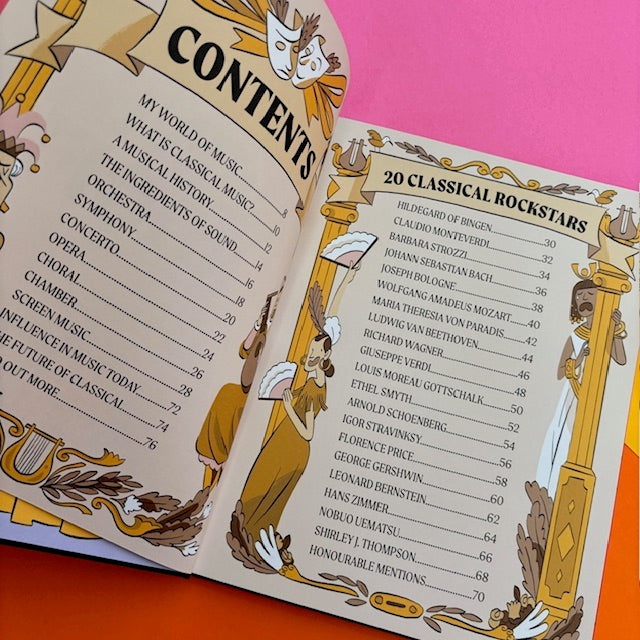 CONTENTS
MY WORLD OF MUSIC.....8
WHAT IS CLASSICAL MUSIC?.....10
A MUSICAL HISTORY.....12
THE INGREDIENTS OF SOUND.....14
ORCHESTRA.....16
SYMPHONY.....18
CONCERTO.....20
OPERA.....22
CHORAL.....24
CHAMBER.....26
SCREEN MUSIC.....28
INFLUENCE IN MUSIC TODAY.....72
THE FUTURE OF CLASSICAL.....74
OUT MORE.....76
20 CLASSICAL ROCKSTARS
HILDEGARD OF BINGEN.....30
CLAUDIO MONTEVERDI.....32
BARBARA STROZZI.....34
JOHANN SEBASTIAN BACH.....36
JOSEPH BOLOGNE.....38
WOLFGANG AMADEUS MOZART.....40
MARIA THERESIA VON PARADIS.....42
LUDWIG VAN BEETHOVEN.....44
RICHARD WAGNER.....46
GIUSEPPE VERDI.....48
LOUIS MOREAU GOTTSCHALK.....50
ETHEL SMYTH.....52
ARNOLD SCHOENBERG.....54
IGOR STRAVINSKY.....56
FLORENCE PRICE.....58
GEORGE GERSHWIN.....60
LEONARD BERNSTEIN.....62
HANS ZIMMER.....64
NOBUO UEMATSU.....66
SHIRLEY J. THOMPSON.....68
HONOURABLE MENTIONS.....70